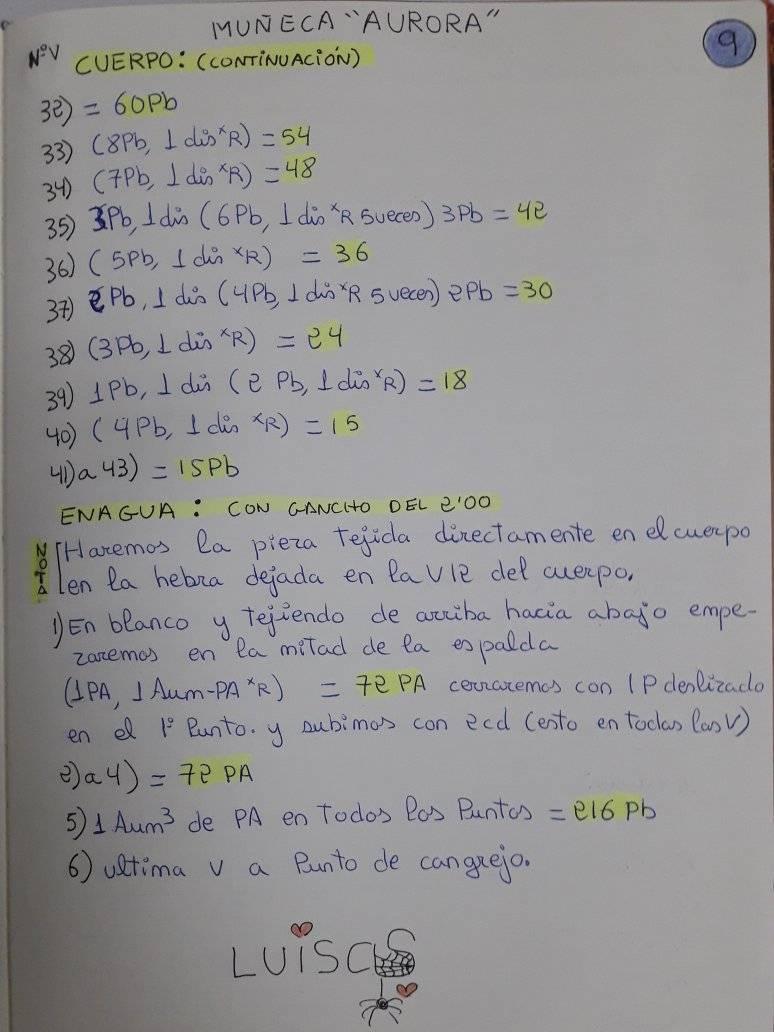 MUÑECA "AURORA"
9
NºV CUERPO: (CONTINUACIÓN)
32) = 60Pb
33) (8Pb, 1 dis xR) = 54
34) (7Pb, 1 dis xR) = 48
35) 3Pb, 1 dis (6Pb, 1 dis xR 5veces) 3Pb = 42
36) (5Pb, 1 dis xR) = 36
37) 2Pb, 1 dis (4Pb, 1 dis xR 5veces) 2Pb = 30
38) (3Pb, 1 dis xR) = 24
39) 1Pb, 1 dis (2 Pb, 1 dis xR) = 18
40) (4Pb, 1 dis xR) = 15
41) a 43) = 15Pb
ENAGUA: CON GANCHO DEL 2'00
NOTA
Haremos la pieza tejida directamente en el cuerpo
en la hebra dejada en la V12 del cuerpo.
1) En blanco y tejiendo de arriba hacia abajo empe-
zaremos en la mitad de la espalda
(1PA, 1 Aum-PA xR) = 72 PA cerraremos con 1P deslizado
en el 1º Punto. y subimos con 2cd (esto en todas las V)
2) a 4) = 72 PA
5) 1 Aum³ de PA en Todos los Puntos = 216 Pb
6) ultima V a Punto de cangrejo.
LUISCAS